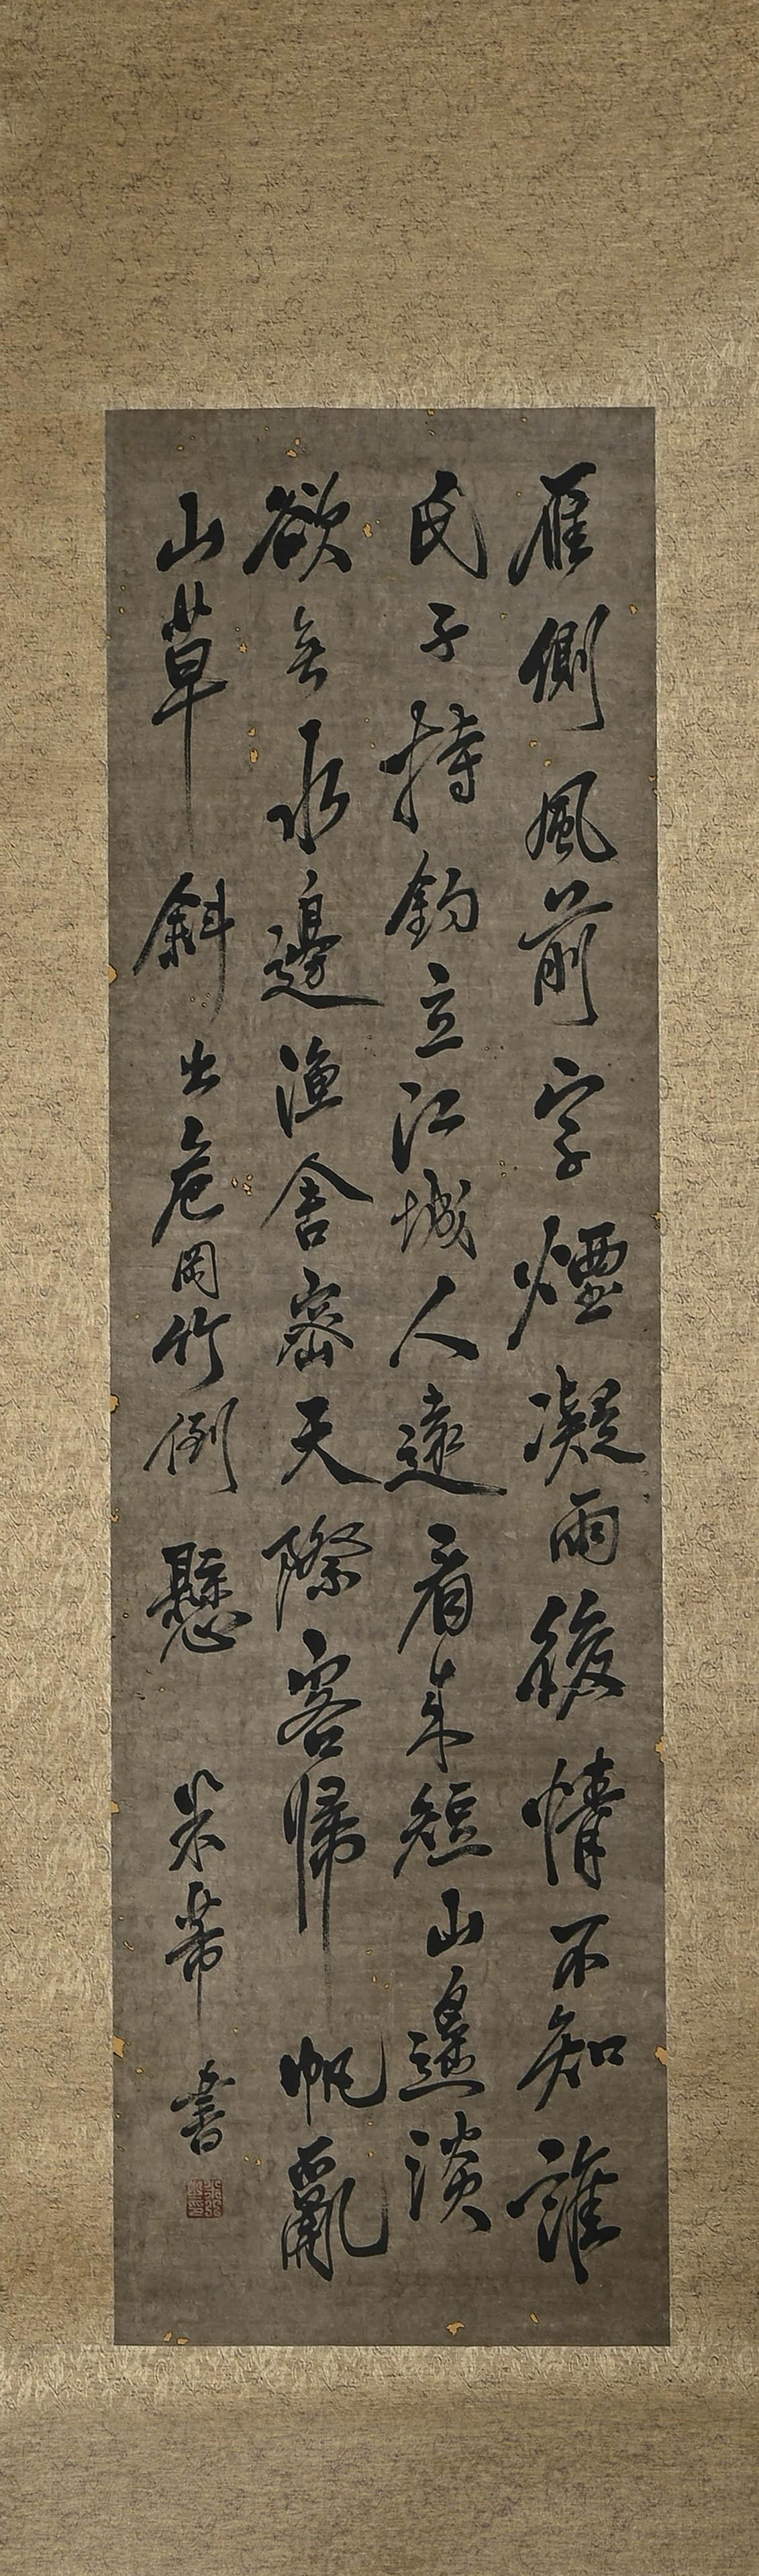 雁側風前字煙凝雨後情不知誰
氏子持釣立江城人遠看来短山邊淡
欲無水邊漁舍密天際客帰帆亂
山草斜出危岡竹倒懸
米芾書